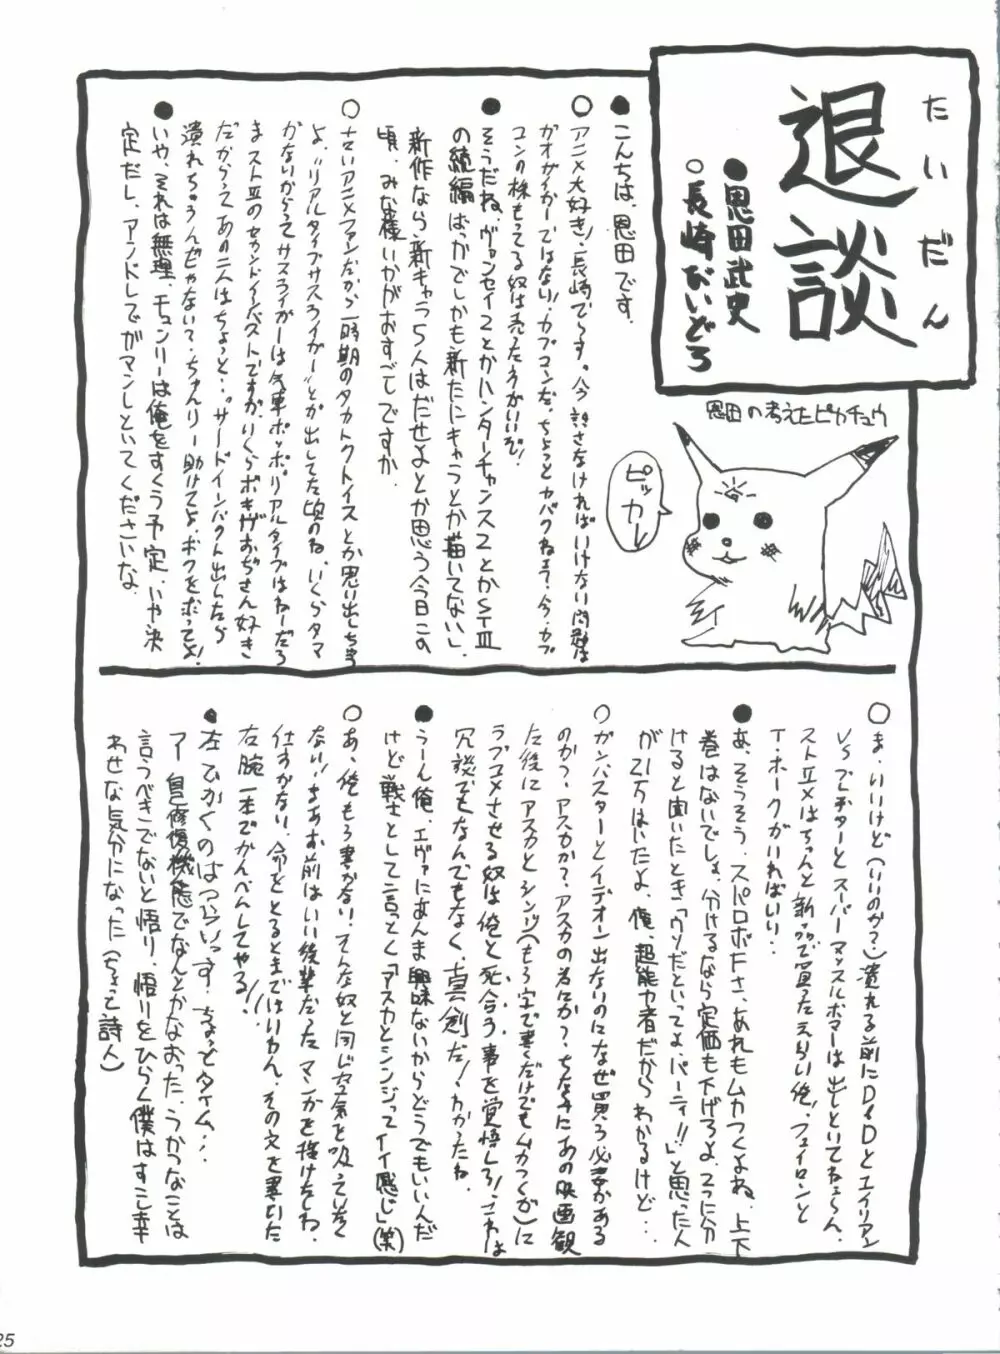 たいだん
退談
●恩田武史
○長崎ないどろ
恩田の考えたピカチュウ
ピッカー
●こんちは、恩田です。
○アニメ大好き!長崎で〜す。今 話さなければいけない問題は
ガオガイガーではない!カプコンだ。ちょっとヤバくねぇ?今、カプ
コンの株もってる奴は売ったほうがいいぞ!
●そうだね、ヴァンセイ2とかハンターチャンス2とかSTIII
の続編ばっかでしかも新たにキャラとか描いてない。
新作なら新キャラ5人はだせよとか思う今日この
頃、みな様いかがおすごしですか。
○せいアニメファンだから一時期のタカトクトイスとか思い出しちゃう
よ。"リアルタイプサスライガー"とか出してた頃のね。いくらタマ
がないからってサスライガーは気車ポッポ。リアルタイプはねーだろ
ま、ストIIIのセカンドインパクトですが、いくらボキがおぢさん好き
だからってあの二人はちょっと…。サードインパクト出したら
潰れちゃうんじゃないで…ちゅんリー助けてよ、ボクをホってよ!
●いや、それは無理、チュンリーは俺をすくう予定、いや決
定だし、アンドレでガマンしといてくださいな。
○ま、いいけど(いいのか?)潰れる前にD&Dとエイリアン
VSプレデターとスーパーマッスルボマーは出しといてねぇ〜ん。
ストIIXはちゃんと新品で買ったえらい俺!フェイロンと
T・ホークがいればいい!
●あ、そうそう、スパロボFさ、あれもムカつくよね、上下
巻はないでしょ。分けるなら定価も下げろよ。2つに分
けると聞いたとき「ウソだといってよ、バーディ!!」と思った人
が21万はいたよ、俺、超能力者だからわかるけど…
○ガンバスターとイデオン出ないのになぜ買う必要がある
のか?アスカか?アスカの為にか?ちなみにあの映画観
た後にアスカとシンジ(もう字で書くだけでもムカつくが)に
ラブコメさせる奴は俺と死合う事を覚悟しろ!これは
冗談でもなんでもなく、真剣だ!わかったね。
●うーん俺、エヴァにあんま興味ないからどうでもいいんだ
けど戦士として一言ってく「アスカとシンジってイイ感じ」(笑)
○あ、俺もう書かない。そんな奴と同じ空気を吸っていたく
ない!まあお前はいい後輩だったマンガを描けたしね。
仕方がない、命をとるとまではいかん、その文を書いた
右腕一本でかんべんしてやる!
●左でかくのはつらいっす。ちょっとタイム…
アー自己修復機能でなんとかなおった、うかつなことは
言うべきでないと悟り、悟りをひらく僕はすこし幸
わせな気分になった(ちょっと詩人)
25